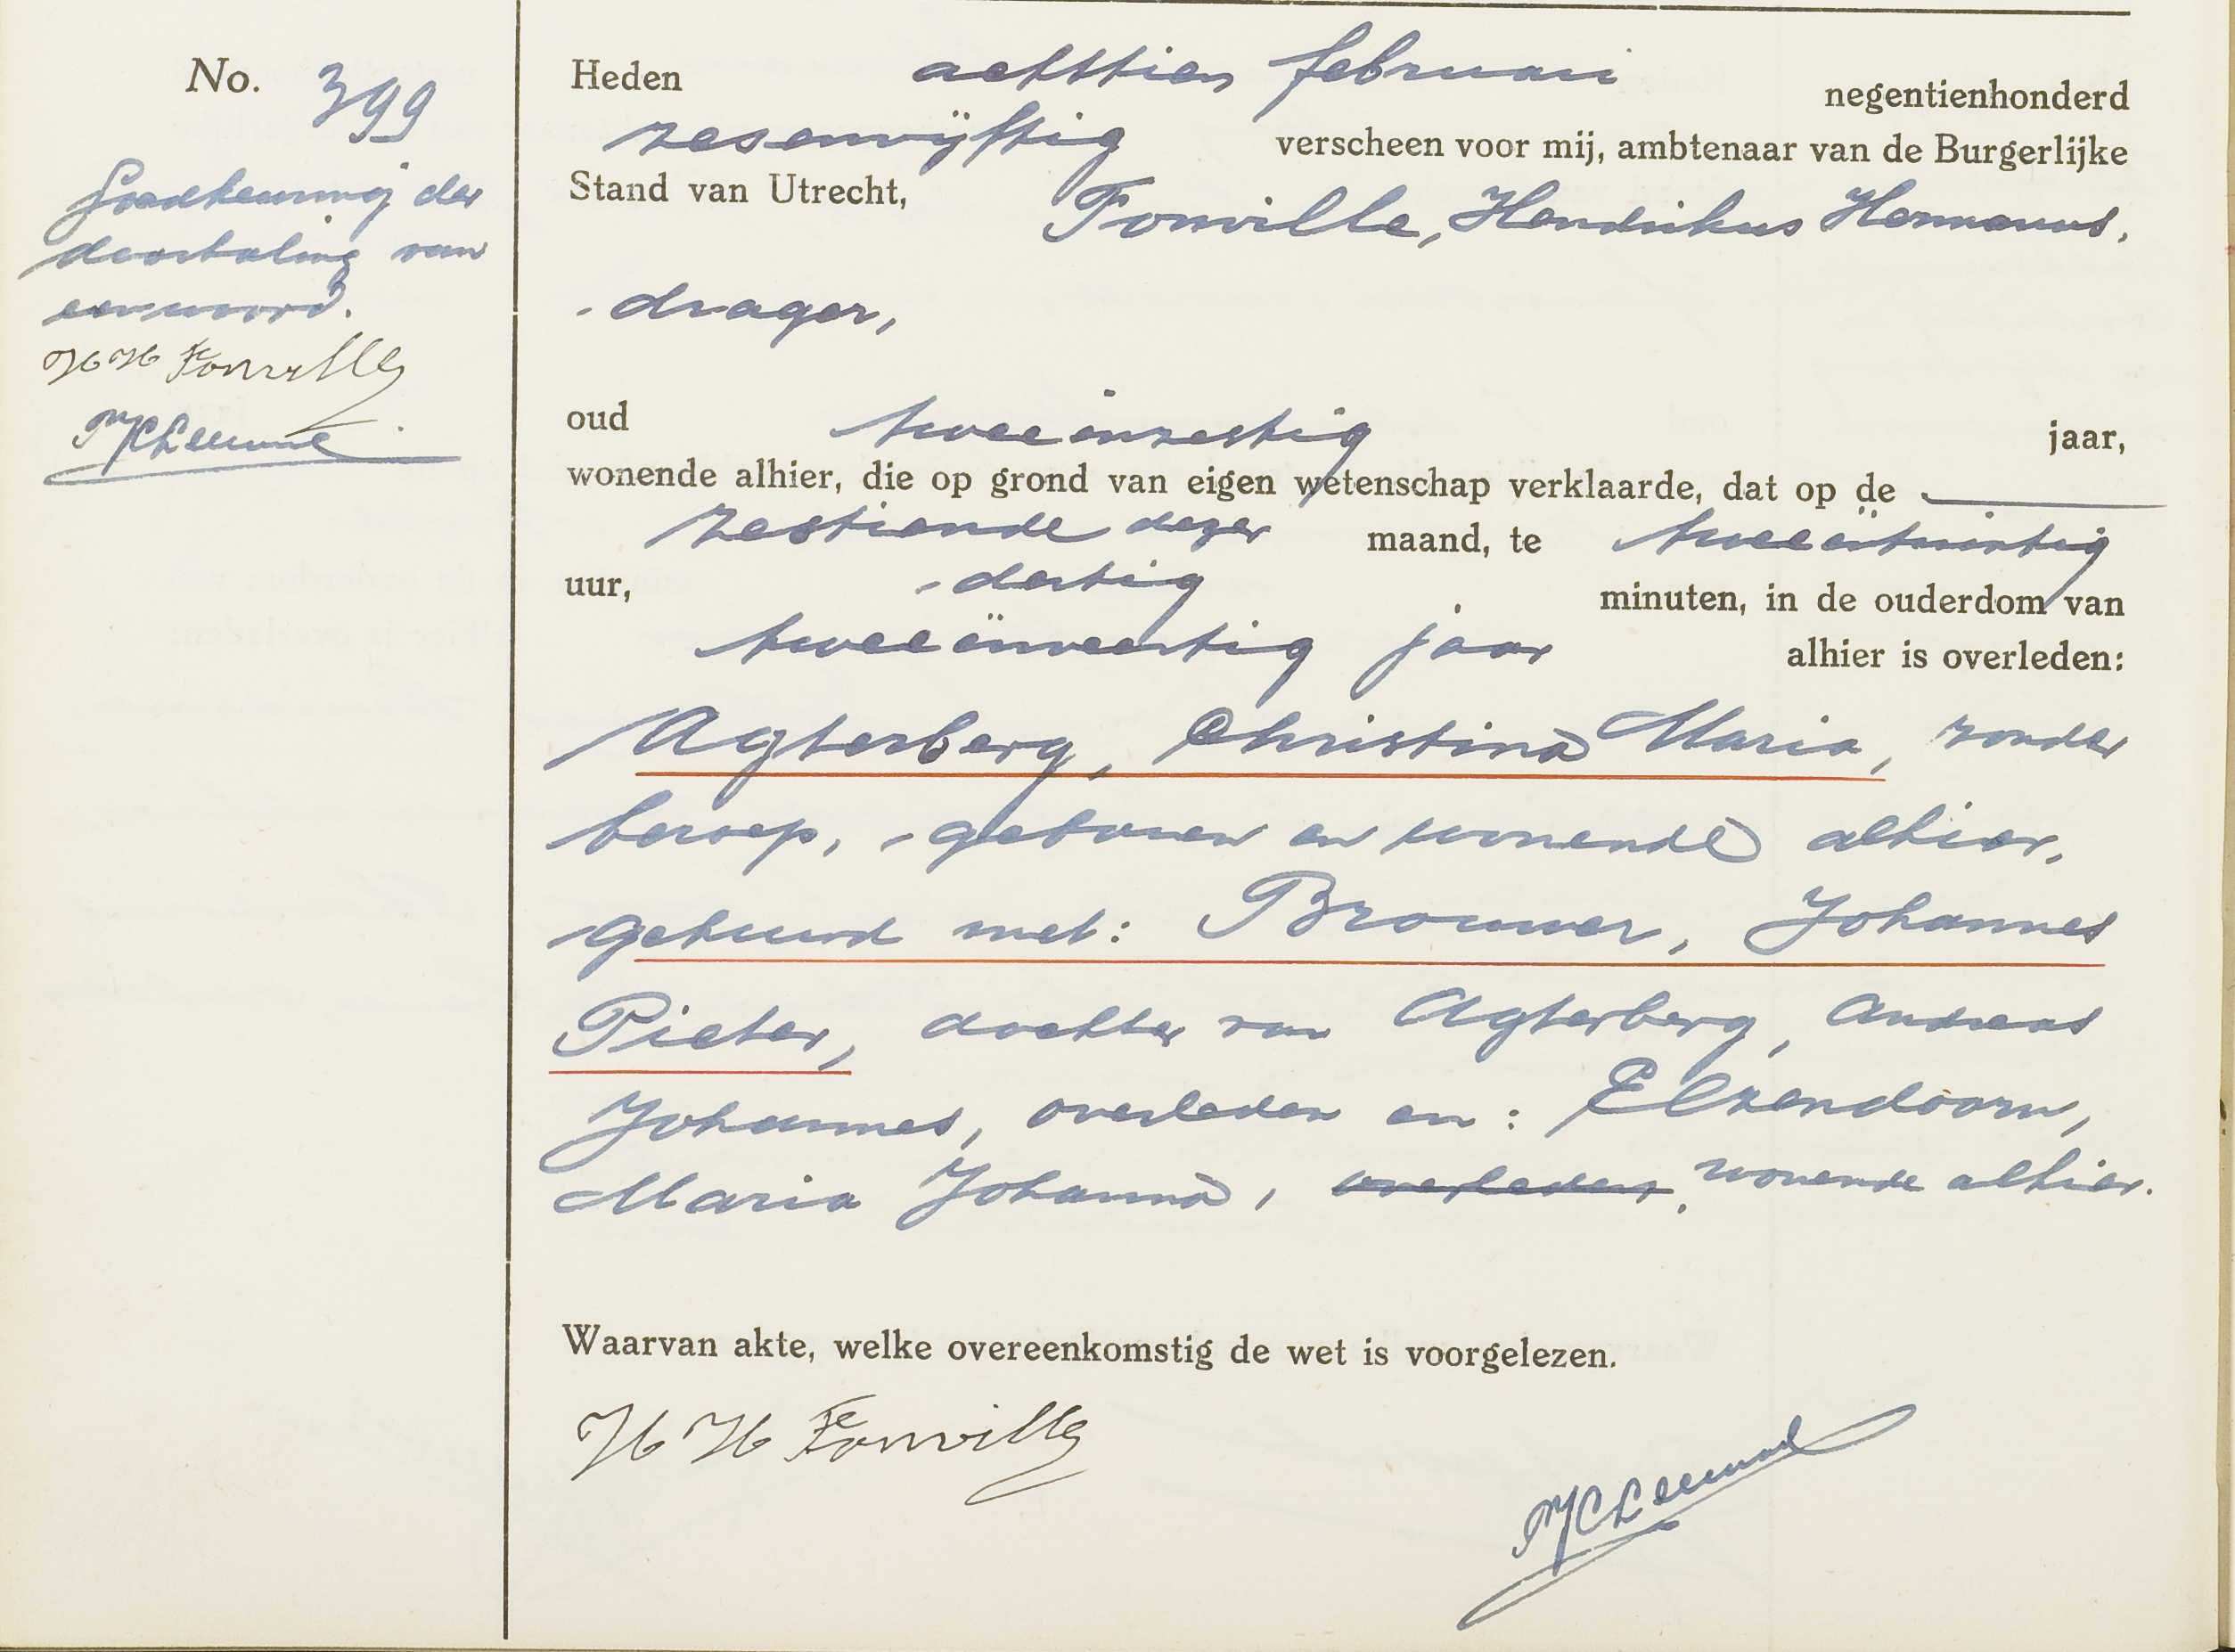 No. 399
Goedkeuring der
doorhaling van
een woord.
H H Fonville
Heden achttien februari negentienhonderd
zesenvijftig verscheen voor mij, ambtenaar van de Burgerlijke
Stand van Utrecht, Fonville, Hendrikus Hermanus,
drager,
oud tweeënzestig jaar,
wonende alhier, die op grond van eigen wetenschap verklaarde, dat op de
zestiende dezer maand, te tweeëntwintig
uur, dertig minuten, in de ouderdom van
tweeënveertig jaar alhier is overleden:
Agterberg, Christina Maria, zonder
beroep, geboren en wonende alhier,
gehuwd met: Brouwer, Johannes
Pieter, dochter van Agterberg, Andreas
Johannes, overleden en: Elzendoorn,
Maria Johanna, overleden, wonende alhier.
Waarvan akte, welke overeenkomstig de wet is voorgelezen.
H H Fonville